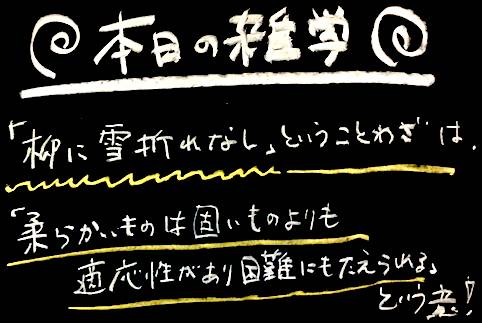 本日の雑学
「柳に雪折れなし」ということわざは、
「柔らかいものは固いものよりも
適応性があり困難にもたえられる」
という意!